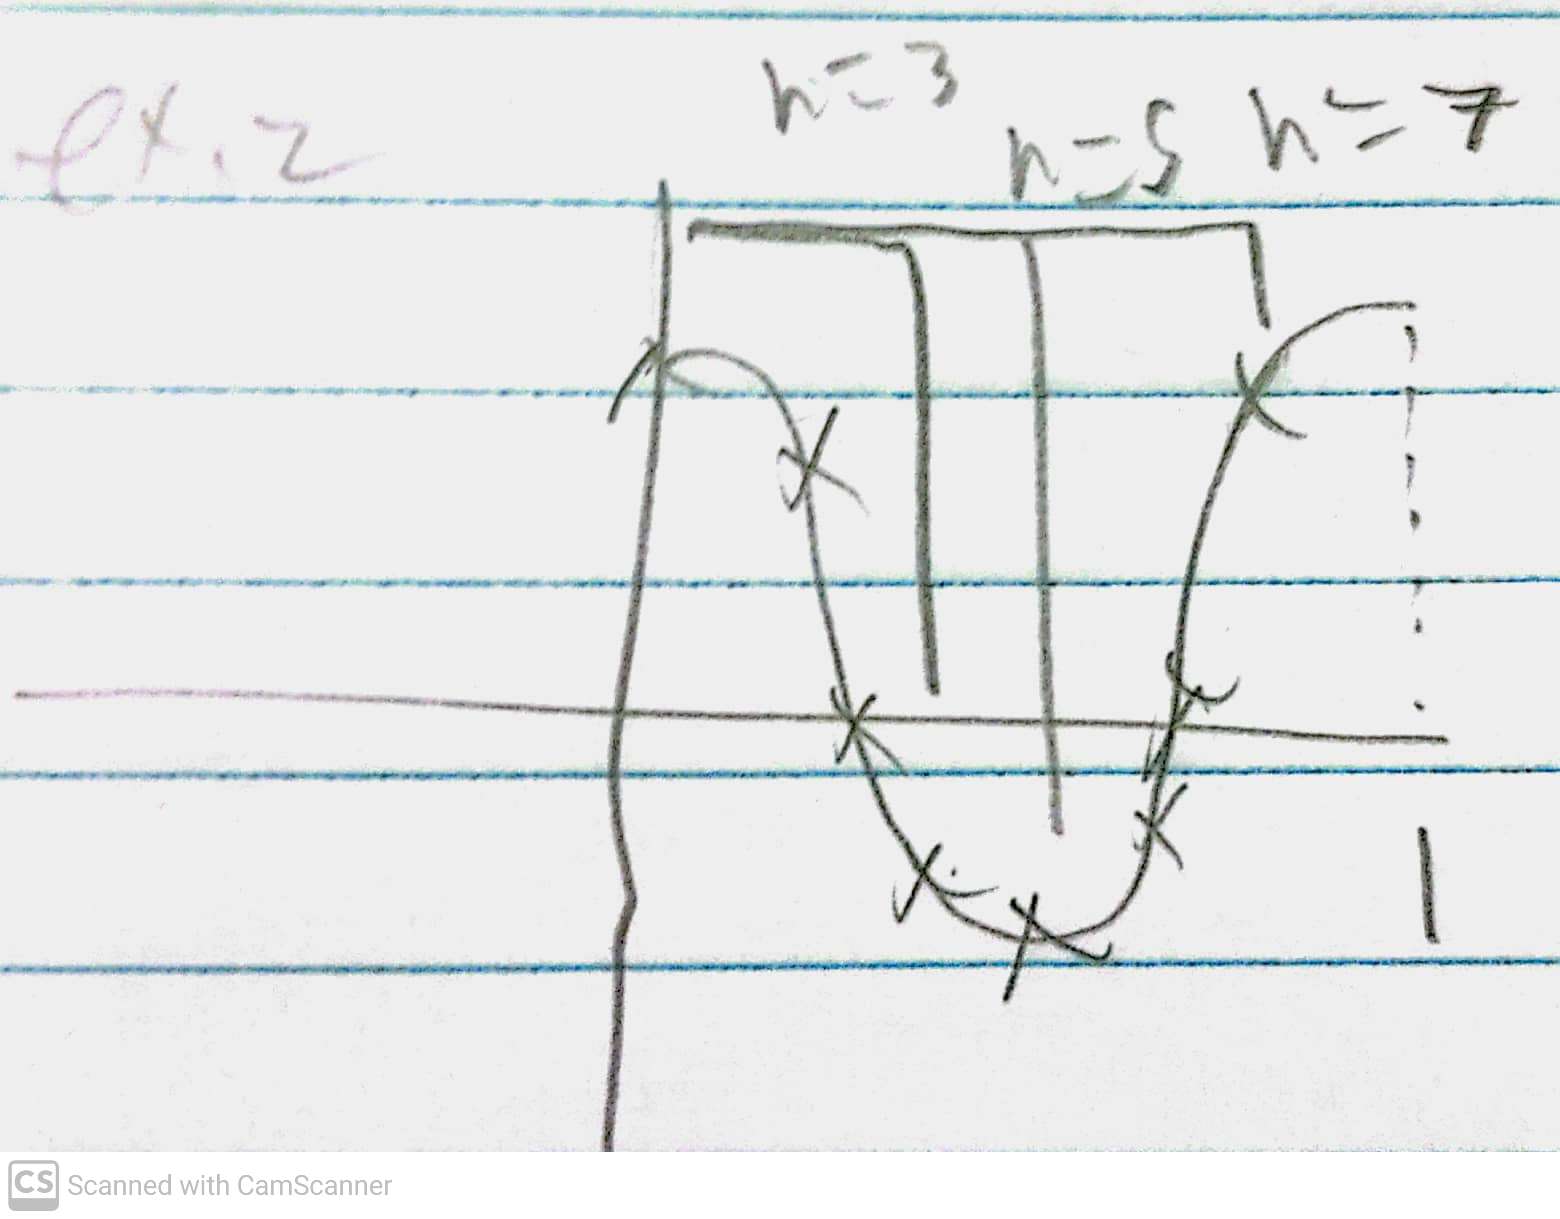 ex. 2
n = 3
n = 5
n = 7
1
CS Scanned with CamScanner